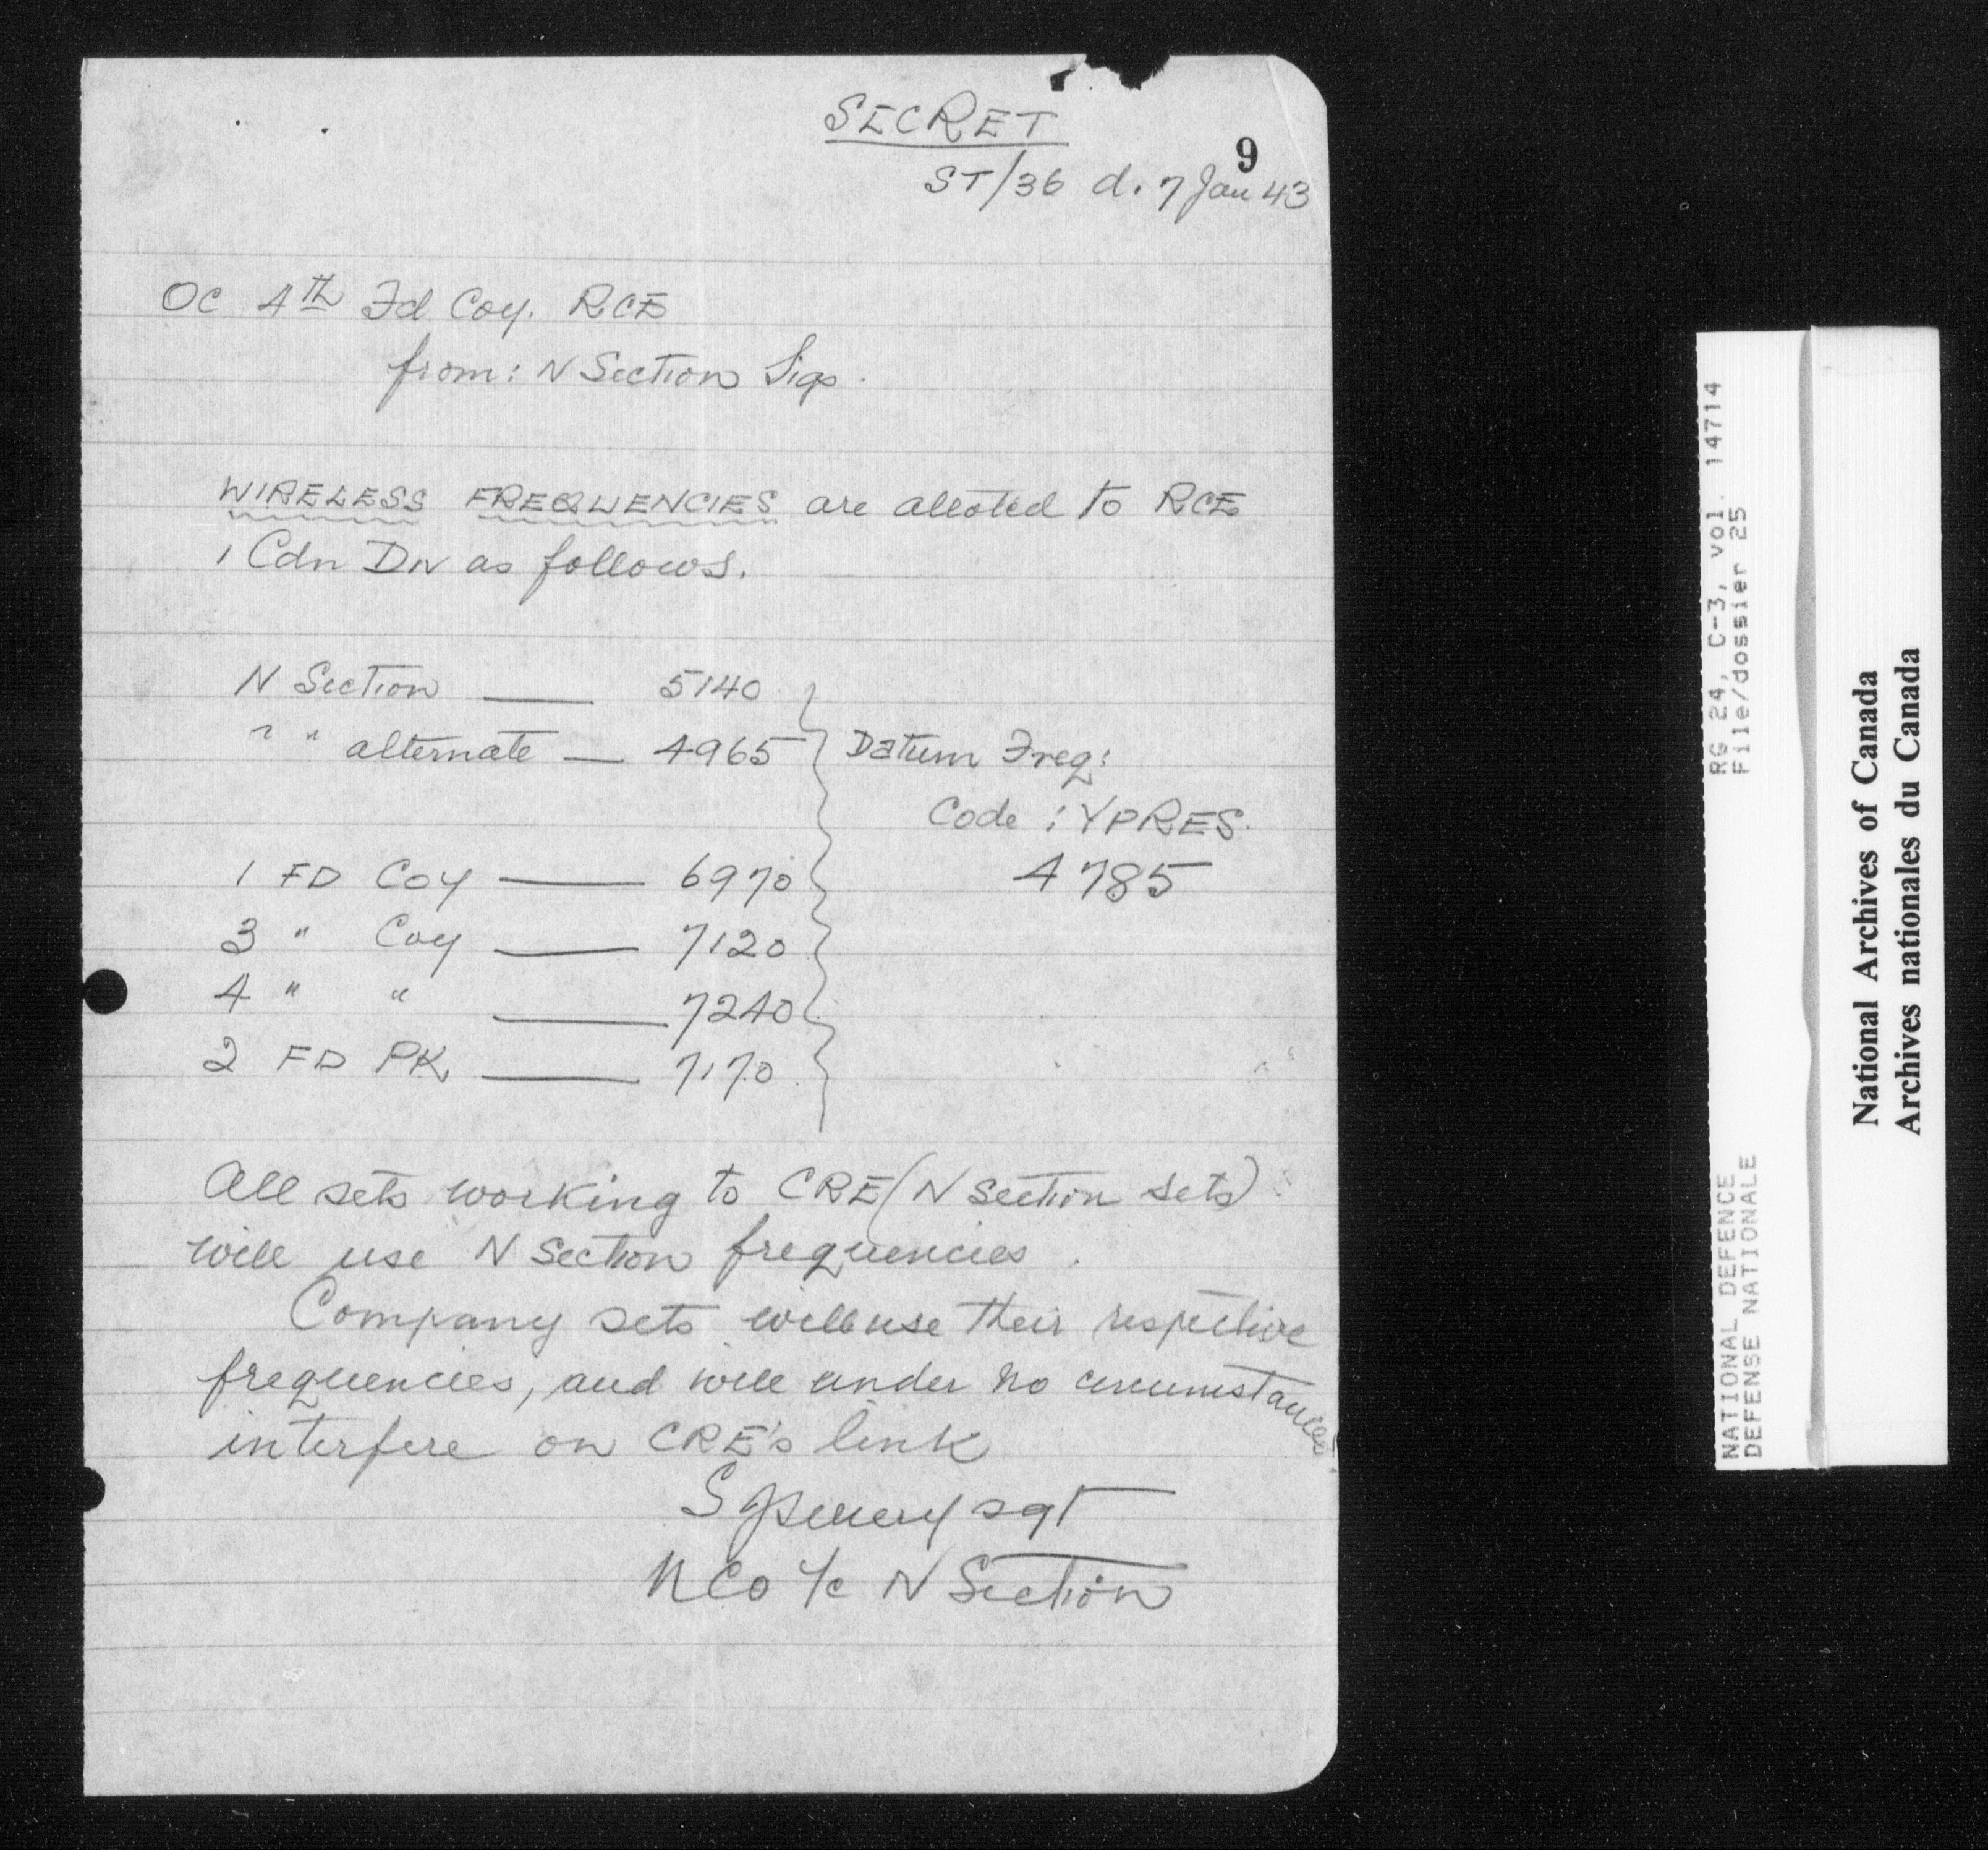 SECRET
9
ST/36 d. 7 Jan 43
OC 4th Fd Coy. RCE
from: N Section Sigs.
WIRELESS FREQUENCIES are alloted to RCE
1 Cdn Div as follows.
N Section — 5140
" " alternate — 4965 Datum Freq:
Code : YPRES.
1 FD Coy — 6970 4785
3 " Coy — 7120
4 " " — 7240
2 FD PK — 7170
All sets working to CRE (N Section sets)
will use N Section frequencies.
Company sets will use their respective
frequencies, and will under no circumstances
interfere on CRE's link
sgt
NCO i/c N Section
RG 24, C-3, vol. 14714
File/dossier 25
NATIONAL DEFENCE
DEFENSE NATIONALE
National Archives of Canada
Archives nationales du Canada